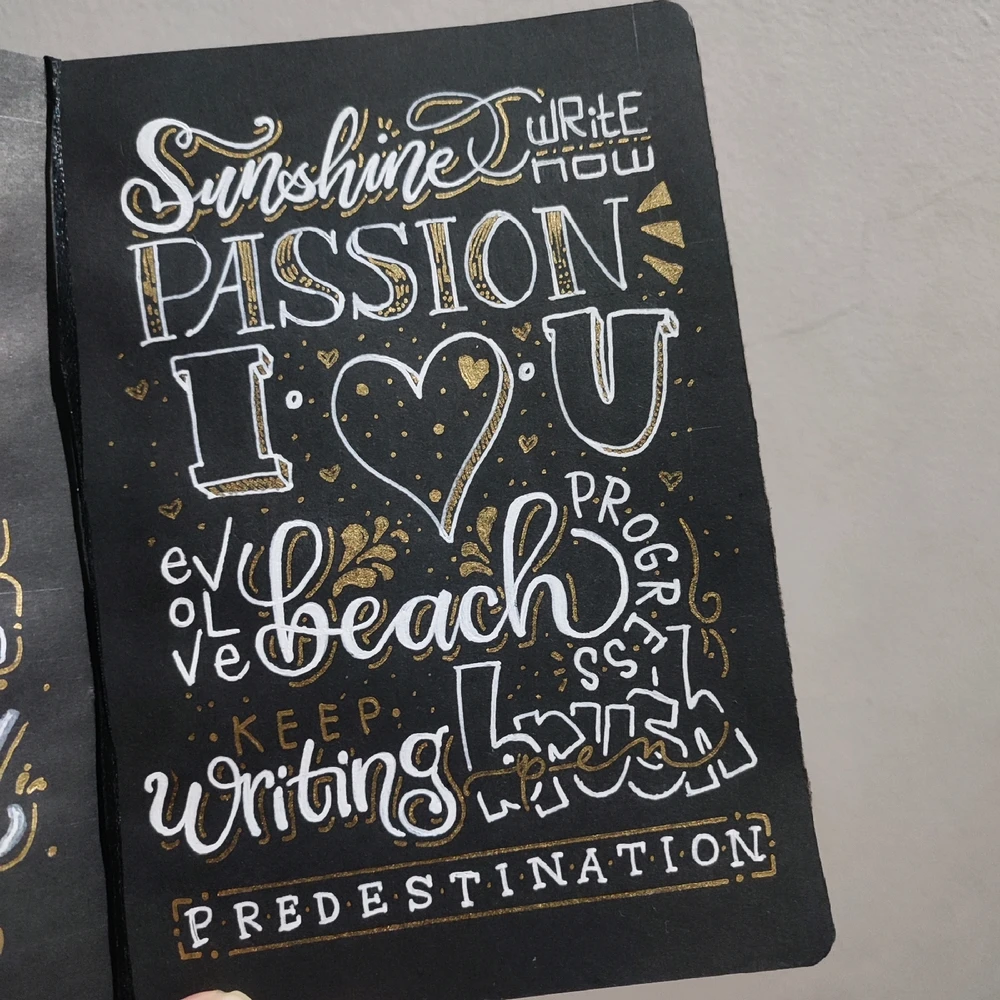 Sunshine
WRitE
now
PASSION
I ♥ U
eV
oL
ve
beach
PROGRESS-
KEEP
writing
brush
pen
PREDESTINATION